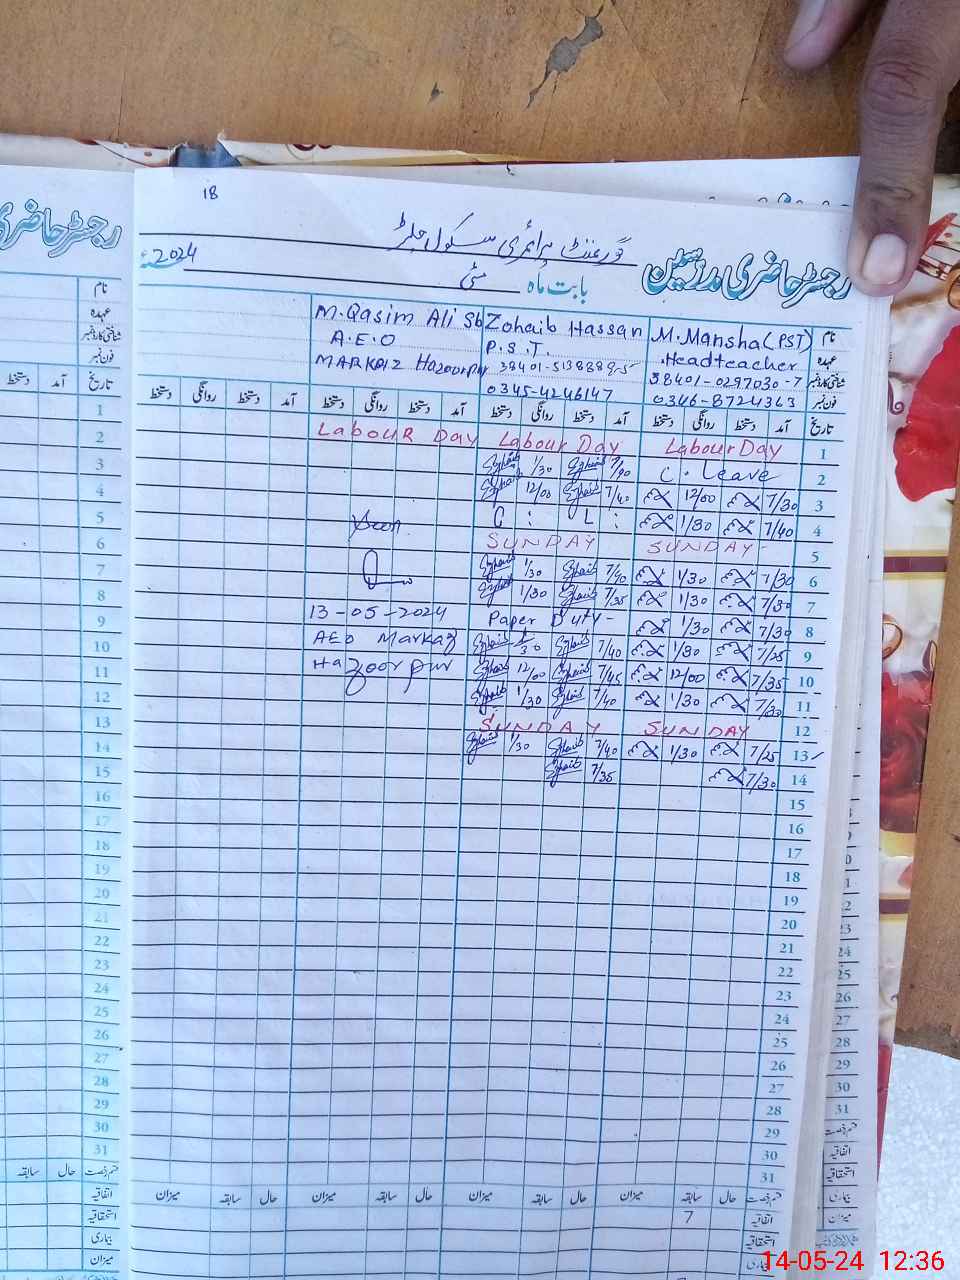 18
رجسٹر حاضری مدرسین گورنمنٹ پرائمری سکول
بابت ماہ مئی 2024ء
رجسٹر حاضری
نام M. Mansha (PST) Zohaib Hassan M. Qasim Ali Sb
عہدہ Headteacher P.S.T. A.E.O
شناختی کارڈ نمبر 38401-0297030-7 38401-5138889-5 MARKAZ Hazoorpur
فون نمبر 0346-8724363 0345-4246147
تاریخ آمد دستخط روانگی دستخط آمد دستخط روانگی دستخط آمد دستخط روانگی دستخط آمد دستخط روانگی دستخط
1 Labour Day Labour Day Labour Day
2 C. Leave 1/30
3 7/30 12/00 7/40 12/00
4 7/40 1/30 C : L : Seen
5 SUNDAY SUNDAY
6 7/30 1/30 1/30
7 7/30 1/30 7/35 1/30
8 7/30 1/30 Paper Duty - 13-05-2024
9 7/25 1/30 7/40 1/30 AEO Markaz
10 7/35 12/00 7/45 12/00 Hazoorpur
11 7/30 1/30 7/40 1/30
12 SUNDAY SUNDAY
13 7/25 1/30 7/40 1/30
14 7/30 7/35
15
16
17
18
19
20
21
22
23
24
25
26
27
28
29
30
31
حال سابقہ میزان حال سابقہ میزان حال سابقہ میزان حال سابقہ میزان
اتفاقیہ 7
استحقاقیہ
بیماری
نام
عہدہ
شناختی کارڈ نمبر
فون نمبر
تاریخ آمد دستخط
1
2
3
4
5
6
7
8
9
10
11
12
13
14
15
16
17
18
19
20
21
22
23
24
25
26
27
28
29
30
31
حال سابقہ
اتفاقیہ
استحقاقیہ
بیماری
میزان
14-05-24 12:36